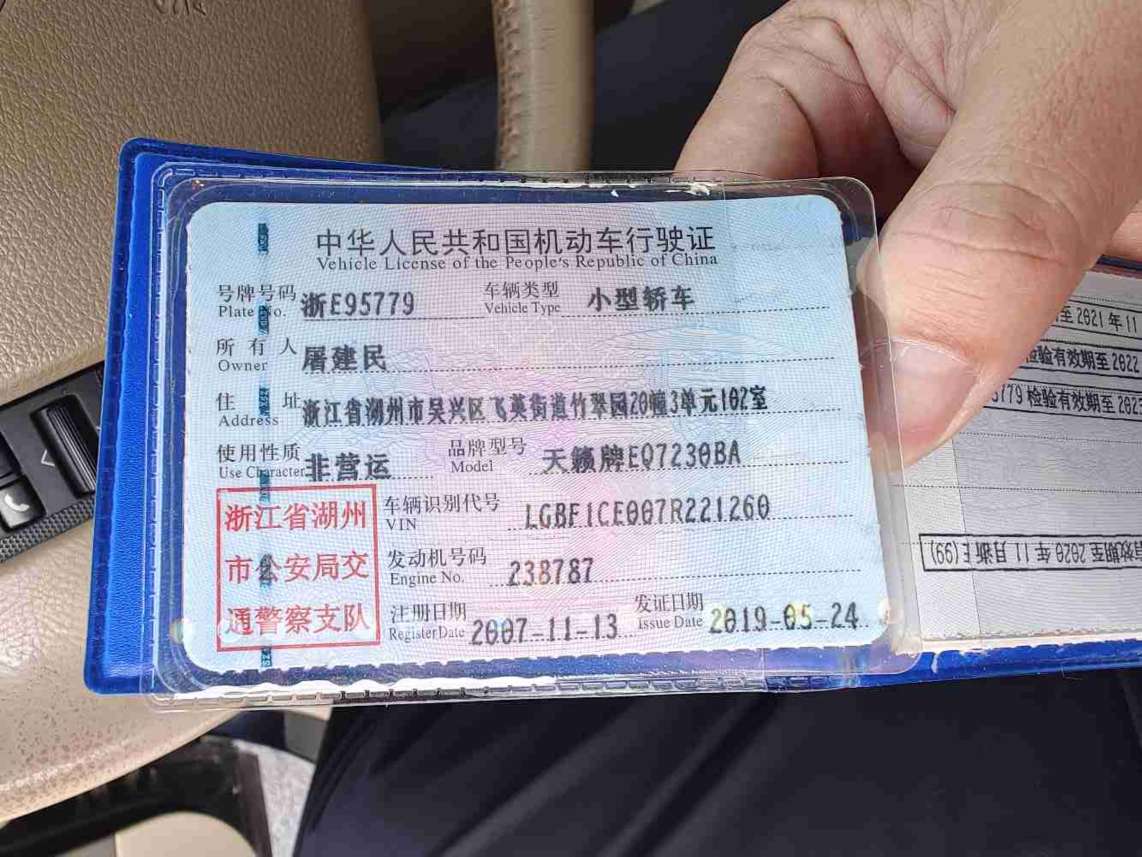 中华人民共和国机动车行驶证
Vehicle License of the People's Republic of China
号牌号码 浙E95779 车辆类型 小型轿车
Plate No. Vehicle Type
所有人 屠建民
Owner
住址 浙江省湖州市吴兴区飞英街道竹翠园20幢3单元102室
Address
使用性质 非营运 品牌型号 天籁牌EQ7230BA
Use Character Model
浙江省湖州
市公安局交
通警察支队
车辆识别代号 LGBF1CE007R221260
VIN
发动机号码 238787
Engine No.
注册日期 2007-11-13 发证日期 2019-05-24
Register Date Issue Date
至2021年11
检验有效期至2022
5779 检验有效期至202
有效期至2020年11月浙E(99)